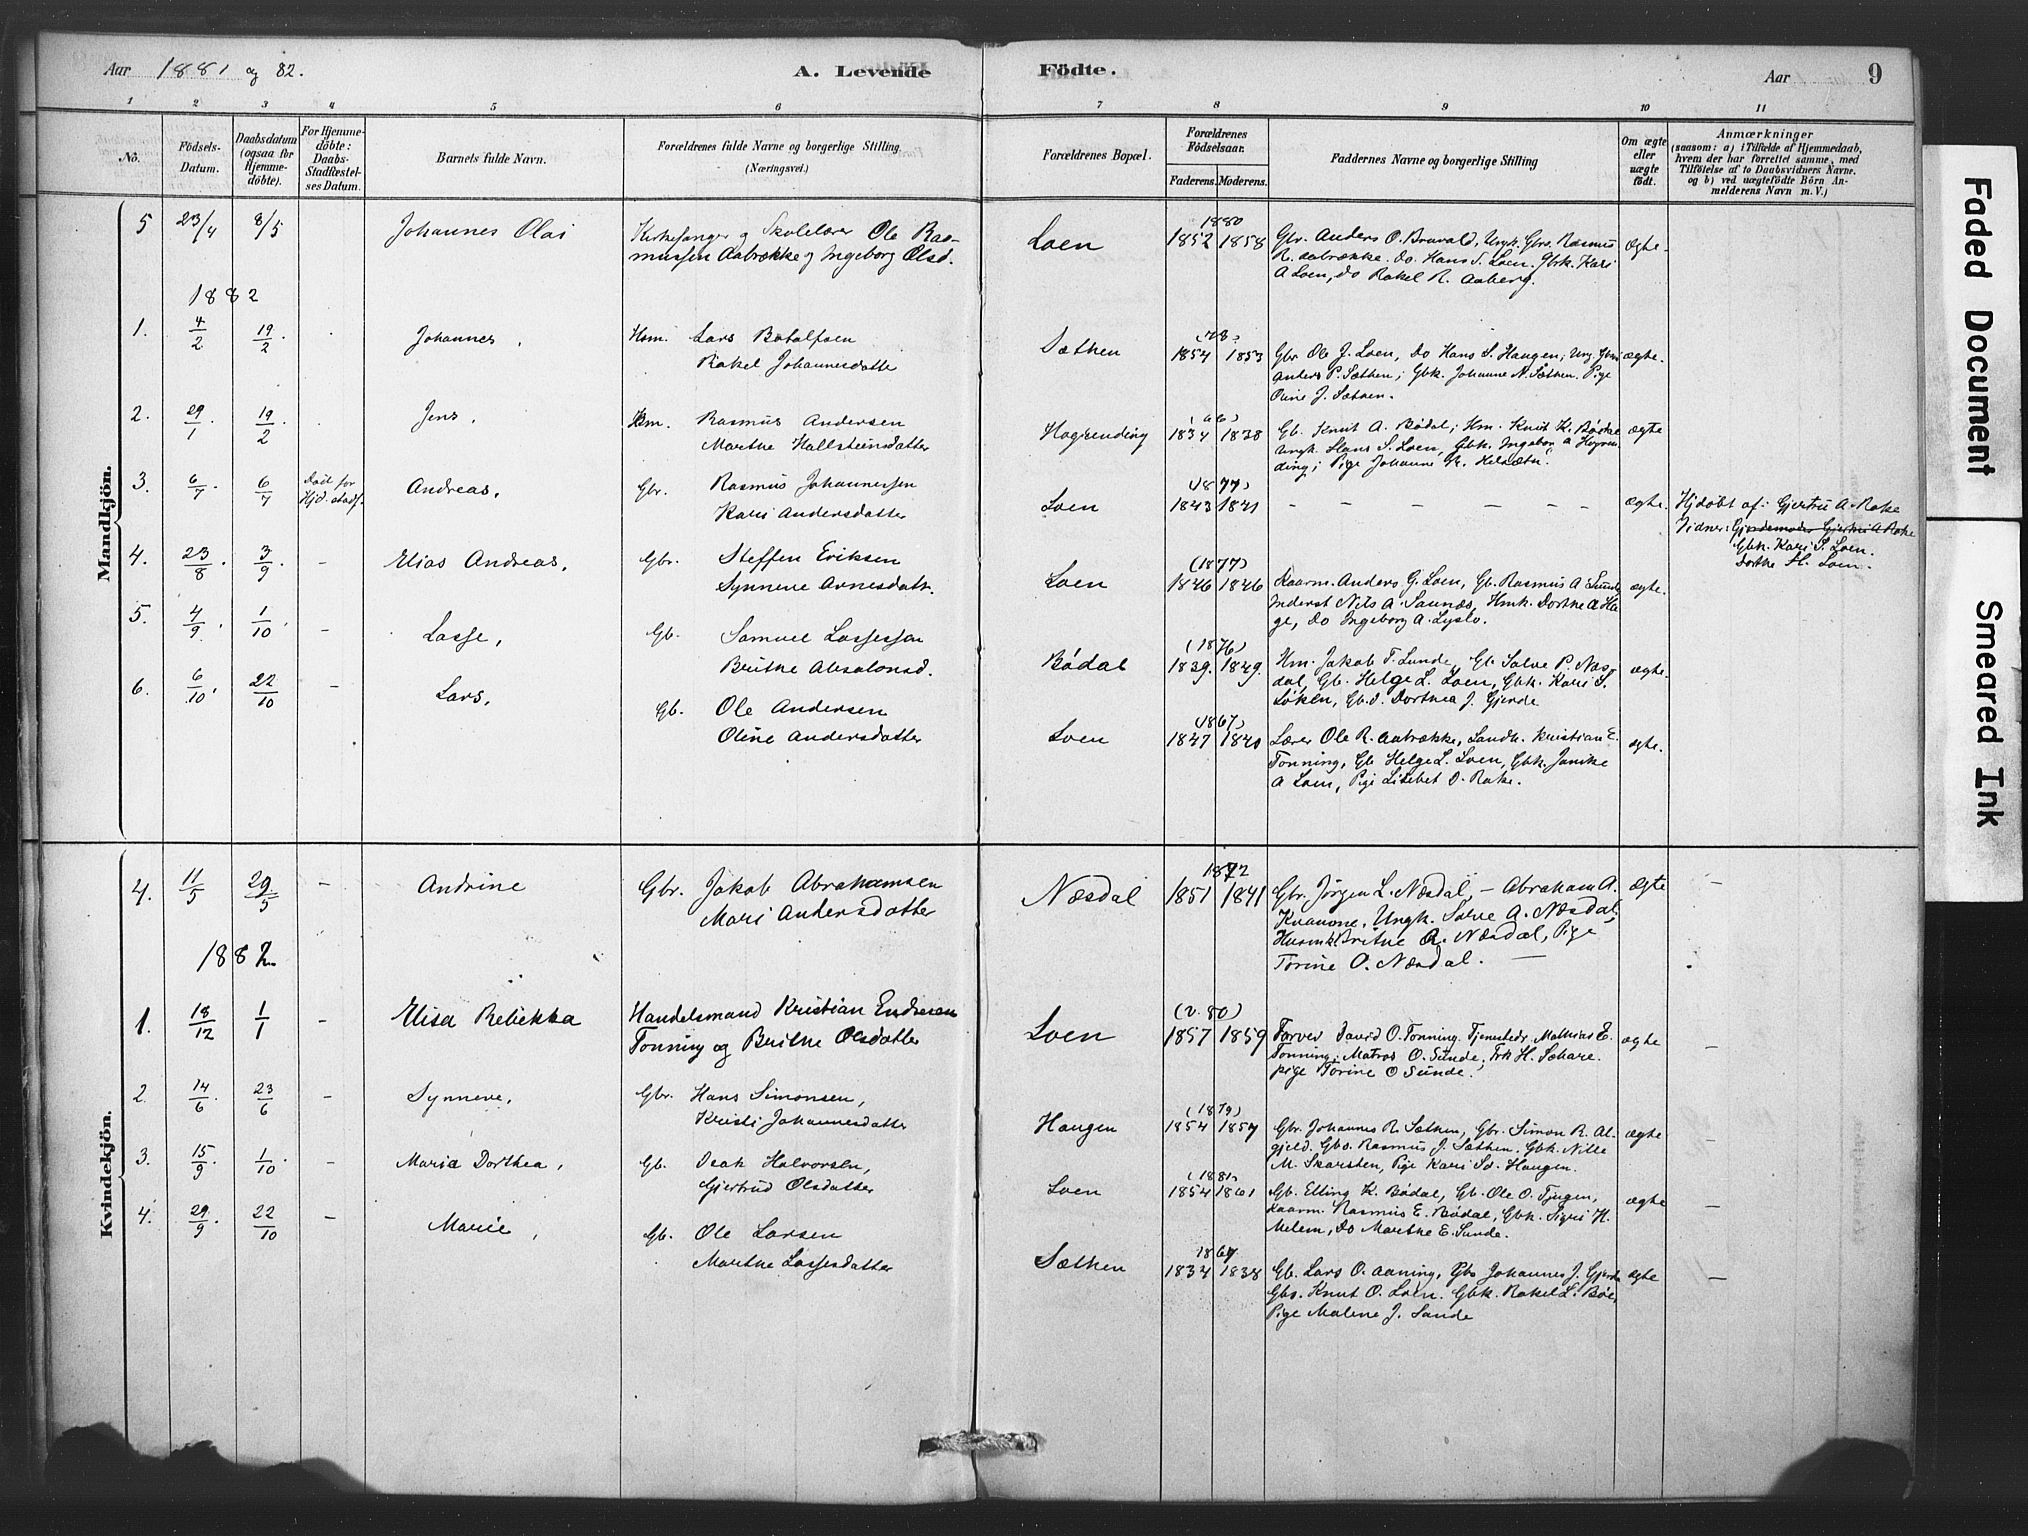 Aar 1881 og 82.
A. Levende Födte.
Aar 9
1 2 3 4 5 6 7 8 9 10 11
No.
Födsels-Datum.
Daabsdatum (ogsaa for Hjemmedöbte).
For Hjemmedöbte: Daabs-Stadfæstelses Datum.
Barnets fulde Navn.
Forældrenes fulde Navne og borgerlige Stilling. (Næringsvei.)
Forældrenes Bopæl.
Forældrenes Födselsaar.
Faderens. Moderens.
Faddernes Navne og borgerlige Stilling
Om ægte eller uægte födt.
Anmærkninger
(saasom: a) i Tilfælde af Hjemmedaab,
hvem der har forrettet samme, med
Tilföielse af to Daabsvidners Navne.
og b) ved uægtefödte Börn An-
melderens Navn m. V.)
Mandkjön.
5 23/4 8/5 Johannes Olai Kirkesanger og Skolelærer Ole Ras-
mussen Aabrække og Ingeborg Olsd. Loen 1880
1852 1858 Gbr. Anders O. Bruvald, Ungk. Gbrs. Rasmus
R. Aabrække. Do Hans S. Loen. Gbrk. Kari
A Loen, do Rakel R. Aaberg. ægte.
1882
1. 4/2 19/2 Johannes, Hsm. Lars Botolfsen
Rakel Johannesdatter Sæthen (78)
1854 1853 Gbr Ole J. Loen, Do Hans S. Haugen, Ung. Gbrs
Anders P. Sæthen; Gbk. Johanne N. Sæthen. Pige
Oline J. Sæthen. ægte.
2. 29/1 19/2 Jens, Hsm. Rasmus Andersen
Marthe Hallsteinsdatter Hogrending (66)
1834 1838 Gb. Knut A. Bødal; Hm. Knut K. Bødal
Ungk. Hans S. Loen, Gbk. Ingebor A Hogren-
ding; Pige Johanne R. Helsæth. ægte
3. 6/7 6/7 Død før Hjd. stadf. Andreas, Gbr. Rasmus Johannessen
Kari Andersdatter Loen (1877)
1843 1841 – – – – – – ægte. Hjdøbt af: Gjertru A. Rake
Vidner: Gjordemoder Gjertrui A Rake
Gbk. Kari S. Loen.
Dorthe H. Loen.
4. 23/8 3/9 – Elias Andreas, Gbr. Steffen Eriksen
Synneve Arnesdatr. Loen (1877)
1846 1846 Kaarm. Anders G. Loen, Gb. Rasmus A Sunde,
Inderst Nils A. Saunæs, Hmk. Dorthe A Ha-
ge, Do Ingeborg A. Lyslo. ægte.
5. 4/9 1/10 – Lasse, Gb. Samuel Lassesson
Brithe Absalonsd. Bødal (1876)
1839. 1849. Hm. Jakob T. Lunde, Gb. Salve P. Næs-
dal, Gb. Helge L. Loen, Gbk. Kari S.
Løken, Gb.d. Dorthea J. Gjerde ægte.
6. 6/10 22/10 – Lars, Gb. Ole Andersen
Oline Andersdatter Loen (1867)
1847 1840 Lærer Ole R. Aabrække, Landh. Kristian E.
Tonning, Gb Helge L. Loen, Gbk. Janike
A Loen, Pige Lisebet O. Rake. ægte.
Kvindekjön.
4. 11/5 29/5 – Andrine Gbr. Jakob Abrahamsen
Mari Andersdatter Næsdal 1872
1851 1841 Gbr. Jörgen L. Næsdal, – Abraham A.
Kvamme, Ungk. Salve A. Næsdal,
Husmk Brithe R. Næsdal, Pige
Torine O. Næsdal. – ægte –
1882
1. 18/12 1/1 – Elisa Rebekka Handelsmand Kristian Endresen
Tonning og Brithe Olsdatter Loen (v. 80)
1857 1859 Farver David O. Tonning. Tjenestedr. Mathias E.
Tonning, Matros O. Sunde, Frk H. Schare.
pige Torine O Sunde. ægte –
2. 14/6 23/6 – Synneve, Gbr. Hans Simonsen,
Kristi Johannesdatter Haugen (1879)
1854 1857 Gbr. Johannes R. Sæthen, Gbr. Simon R. Al-
gjeld. Gbs. Rasmus J. Sæthen. Gbk. Nille
M. Skarsten, Pige Kari Sd. Haugen. ægte –
3. 15/9 1/10 – Maria Dorthea, Gb. Isak Halvorsen,
Gjertrud Olsdatter Loen (1881)
1854 1861 Gb. Elling K. Bødal, Gb. Ole O. Tjugen,
Kaarm. Rasmus E. Bødal, Gbk. Sigri H.
Melem, Do Marthe E. Sunde. ægte –
4. 29/9 22/10 – Marie, Gb. Ole Larsen
Marthe Lassesdatter Sæthen 1867
1834 1838 Gb. Lars O. Aaning, Gbs Johannes J. Gjerde
Gbs. Knut O. Loen. Gbk. Rakel L. Bøe,
Pige Malene J. Sande ægte –
Faded Document
Smeared Ink